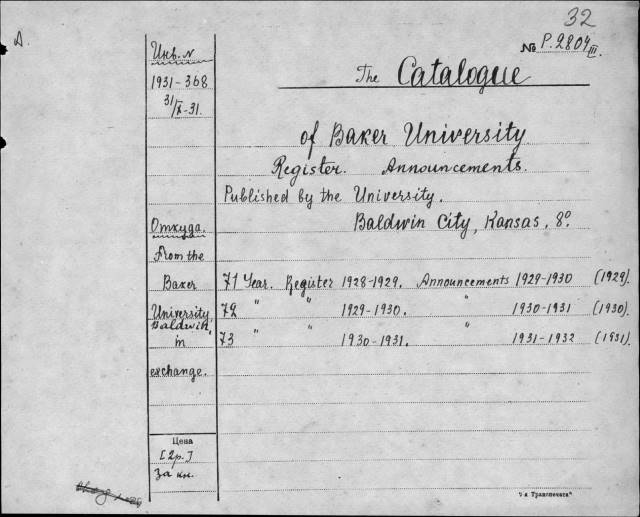 32
A.
№ P.2804 III.
Инв. N
1931-368
31/X-31.
The Catalogue
of Baker University
Register. Announcements.
Published by the University.
Baldwin City, Kansas, 8°.
Откуда.
From the
Baker
University,
Baldwin,
in
exchange.
71 Year. Register 1928-1929. Announcements 1929-1930 (1929).
72 " " 1929-1930. " 1930-1931 (1930).
73 " " 1930-1931. " 1931-1932 (1931).
Цена
[2р.]
за кн.
"я Транспечать"